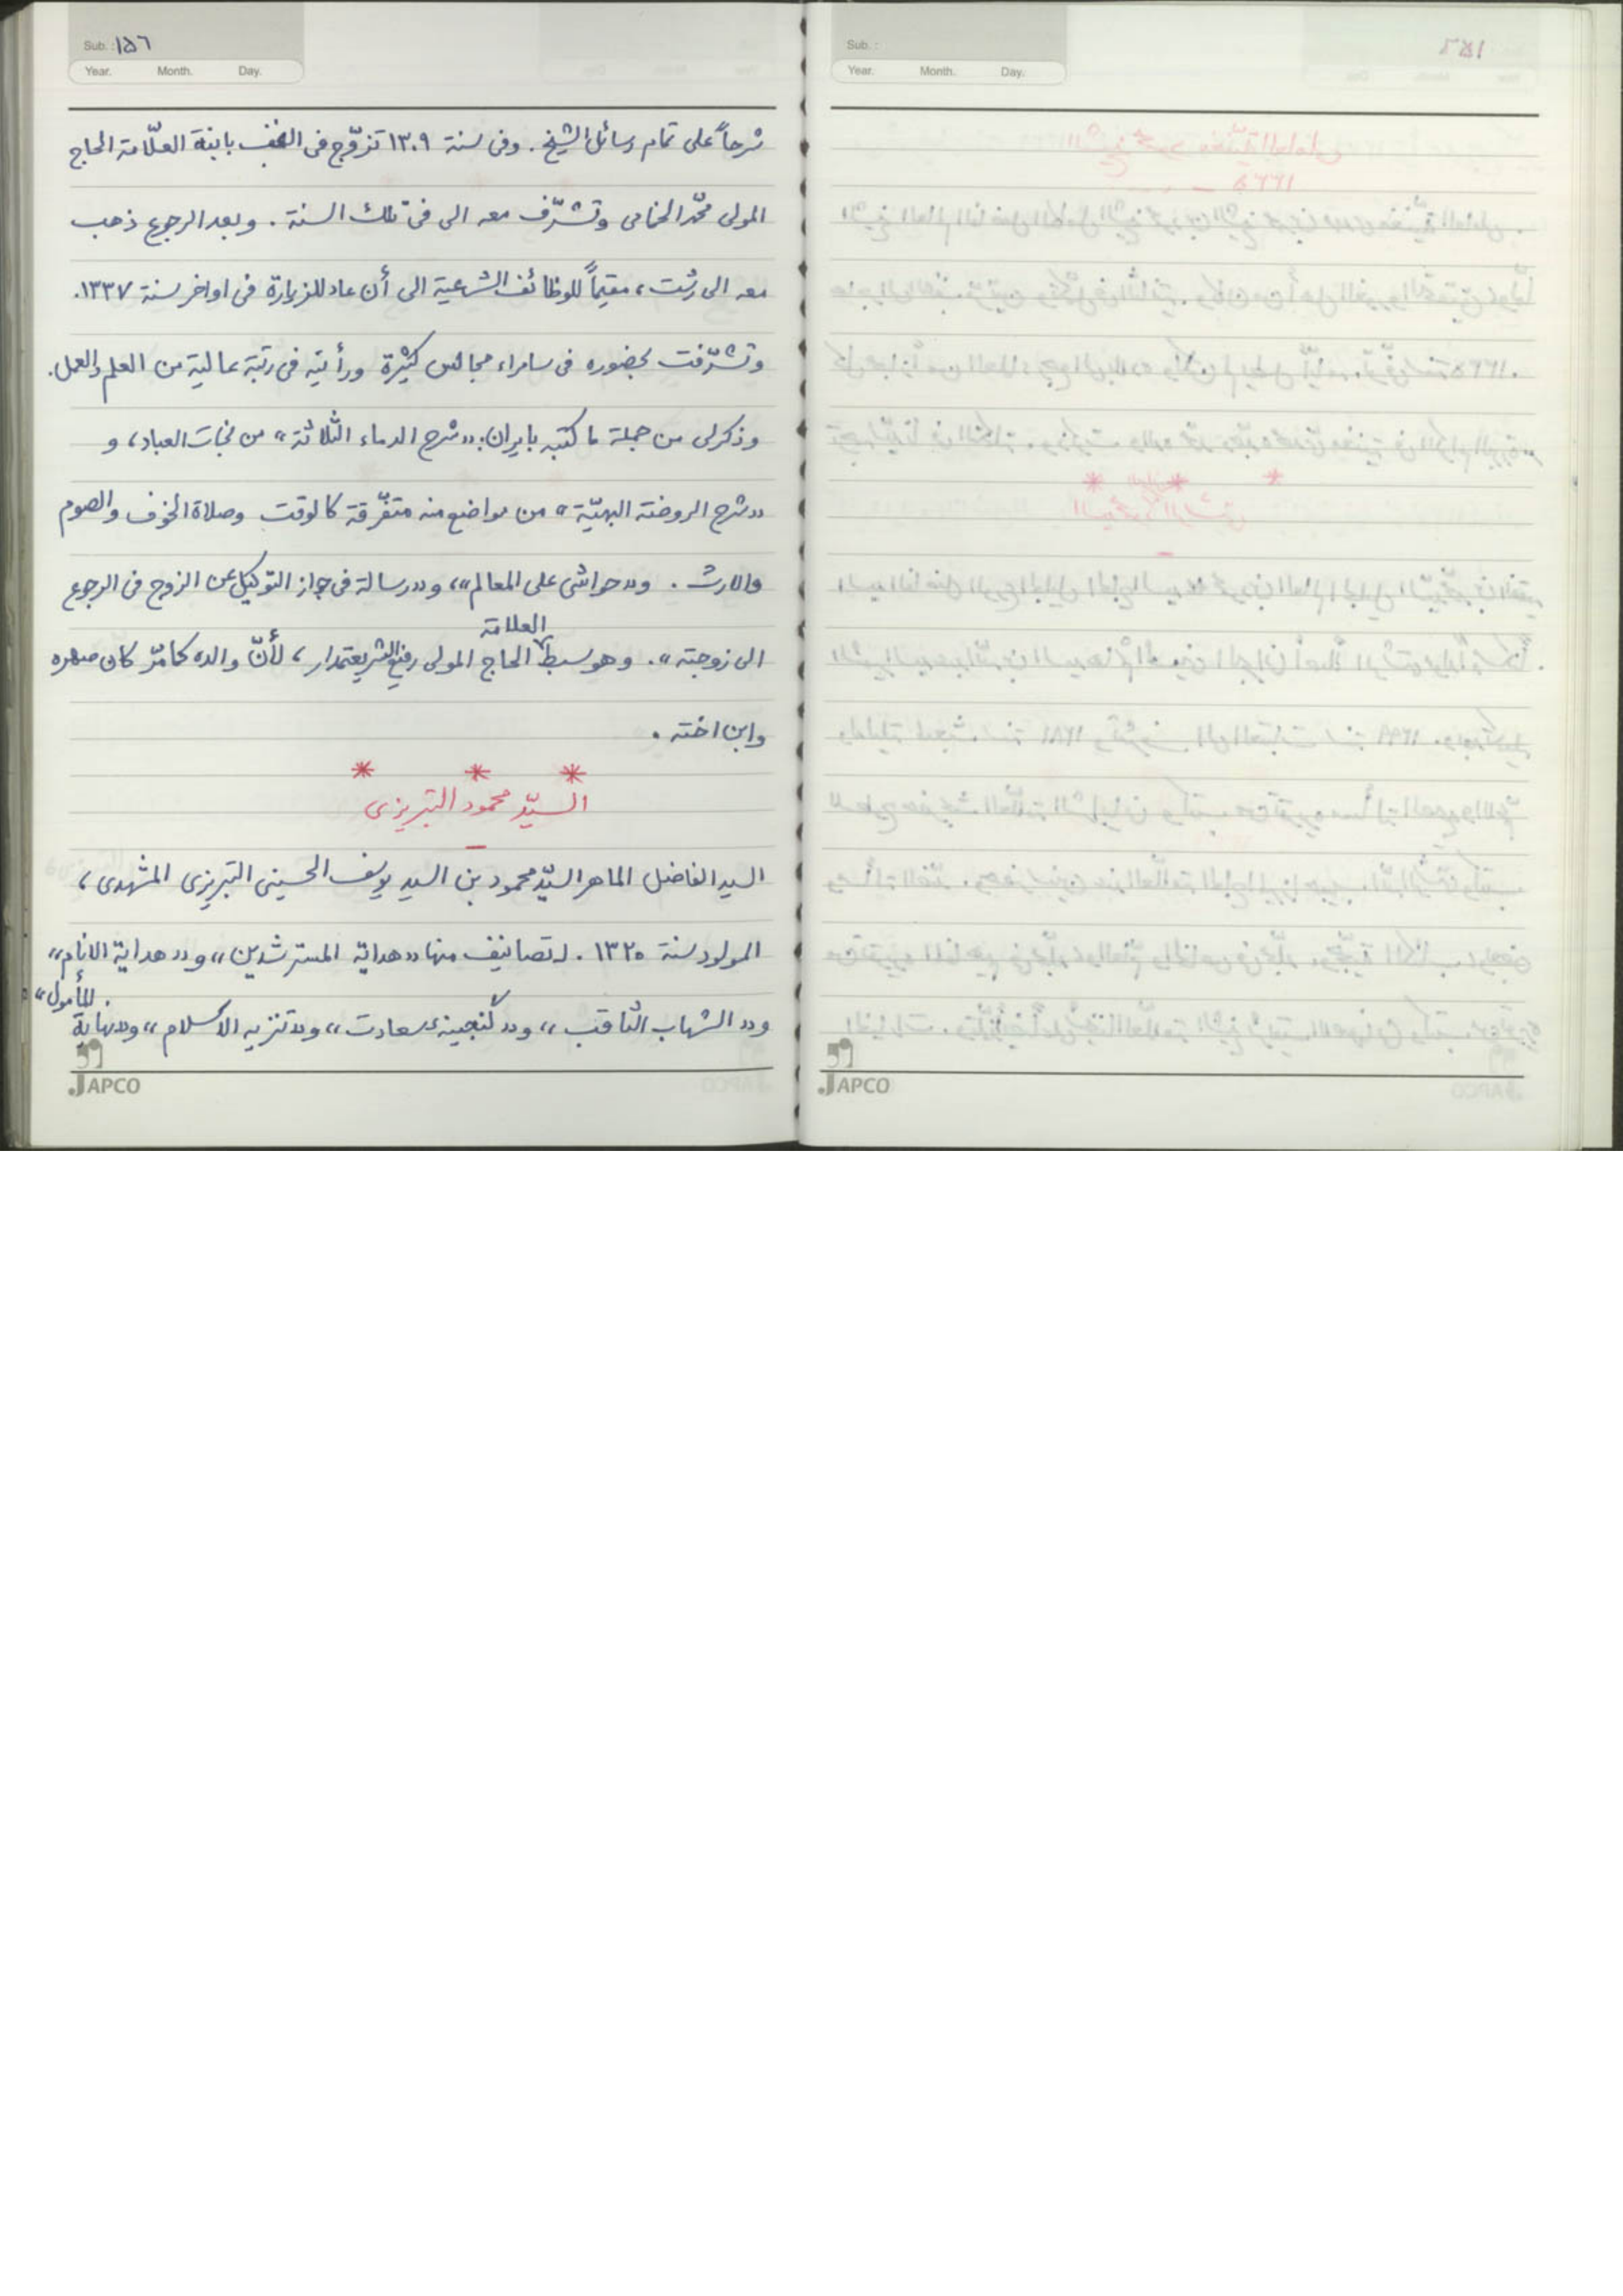 Sub.: ١۵٦
Year. Month. Day.
شرحاً على تمام رسائل الشيخ. وفى سنة ١٣٠٩ تزوّج فى النجف بابنة العلّامة الحاج
المولى محمّد الخمامى وتشرّف معه الى فى تلك السنة. وبعد الرجوع ذهب
معه الى رشت، مقيماً للوظائف الشرعية الى أن عاد للزيارة فى اواخر سنة ١٣٣٧.
وتشرّفت بحضوره فى سامراء مجالس كثيرة ورأيته فى رتبة عالية من العلم والعمل.
وذكر لى من جملة ما كتبه بايران: «شرح الدماء الثلاثة» من نجات العباد، و
«شرح الروضة البهيّة» من مواضع منه متفرّقة كالوقت وصلاة الخوف والصوم
والارث. و«حواشى على المعالم»، و«رسالة فى جواز التوكيل عن الزوج فى الرجوع
العلامة
الى زوجته». وهو سبط الحاج المولى رفيع الشريعتمدار، لأنّ والده كما مرّ كان صهره
وابن اخته.
* * *
السيّد محمود التبريزى
–
السيد الفاضل الماهر السيّد محمود بن السيد يوسف الحسينى التبريزى المشهدى،
المولود سنة ١٣٢٥. له تصانيف منها «هداية المسترشدين» و«هداية الانام»
و«الشهاب الثاقب» و«گنجينهٔ سعادت» و«تنزيه الاسلام» و«نهاية
المأمول»
JAPCO
Sub.:
Year. Month. Day.
JAPCO